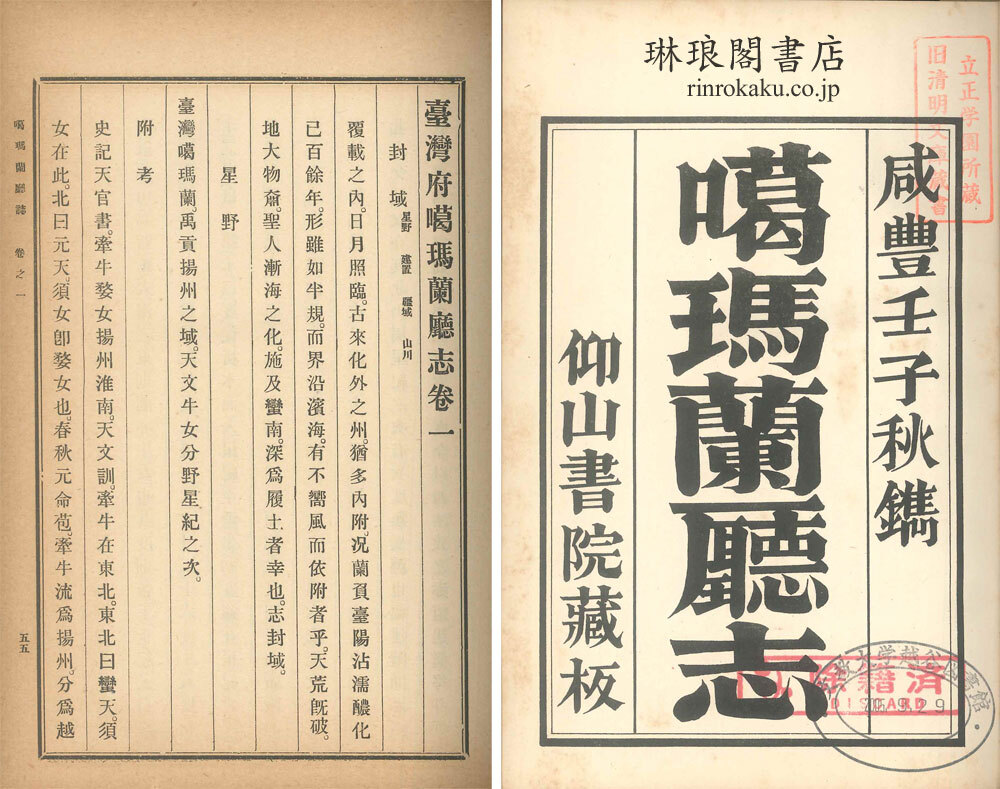 臺灣府噶瑪蘭廳志卷一
封域 星野 建置 疆域 山川
覆載之內。日月照臨。古來化外之州。猶多內附。况蘭負臺陽沾濡醲化
已百餘年。形雖如半規。而界沿濱海。有不嚮風而依附者乎。天荒旣破。
地大物奫。聖人漸海之化。施及蠻南。深爲履土者幸也。志封域。
星野
臺灣噶瑪蘭。禹貢揚州之域。天文牛女分野星紀之次。
附考
史記天官書。牽牛婺女揚州淮南。天文訓。牽牛在東北。東北曰蠻天。須
女在此。北曰元天。須女卽婺女也。春秋元命苞。牽牛流爲揚州。分爲越
噶瑪蘭廳誌 卷之一
五五
琳琅閣書店
rinrokaku.co.jp
立正学園所蔵
旧清明文庫蔵書
咸豐壬子秋鐫
噶瑪蘭廳志
仰山書院藏板
除籍済
DISCARD